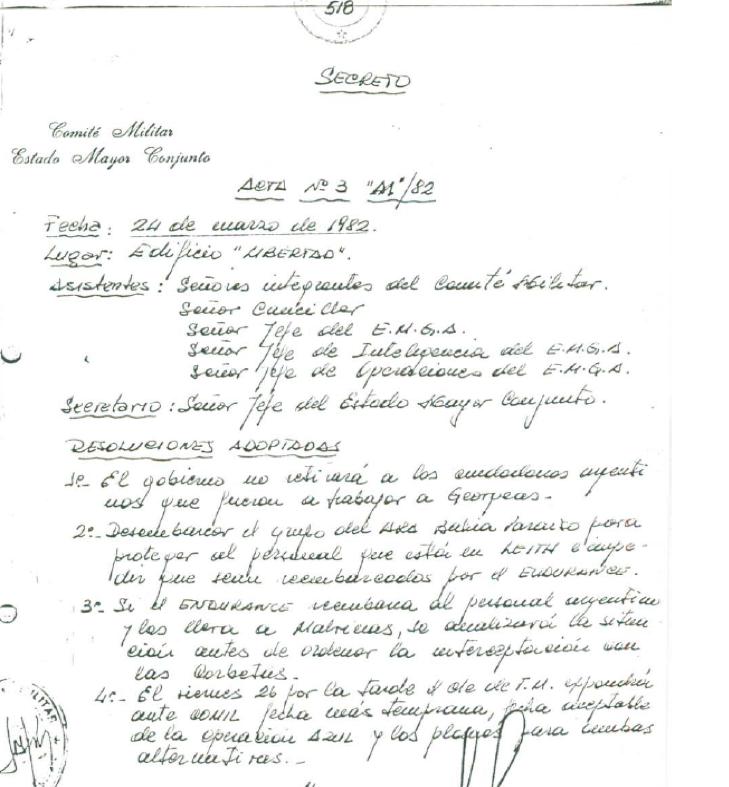 518
SECRETO
Comité Militar
Estado Mayor Conjunto
ACTA Nº 3 "M"/82
Fecha: 24 de marzo de 1982.
Lugar: Edificio "LIBERTAD".
Asistentes: Señores integrantes del Comité Militar.
Señor Canciller
Señor Jefe del E.M.G.A.
Señor Jefe de Inteligencia del E.M.G.A.
Señor Jefe de Operaciones del E.M.G.A.
Secretario: Señor Jefe del Estado Mayor Conjunto.
RESOLUCIONES ADOPTADAS
1º- El gobierno no retirará a los ciudadanos argenti
nos que fueron a trabajar a Georgias.-
2º- Desembarcar el grupo del ARA Bahía Paraíso para
proteger al personal que está en LEITH e impe-
dir que sean reembarcados por el ENDURANCE.
3º- Si el ENDURANCE reembarca al personal argentino
y los lleva a Malvinas, se analizará la situa-
ción antes de ordenar la interceptación con
las Corbetas.-
4º- El viernes 26 por la tarde el de T.M. expondrá
ante COMIL fecha más temprana, fecha aceptable
de la operación AZUL y los plazos para ambas
alternativas.-
MILITAR